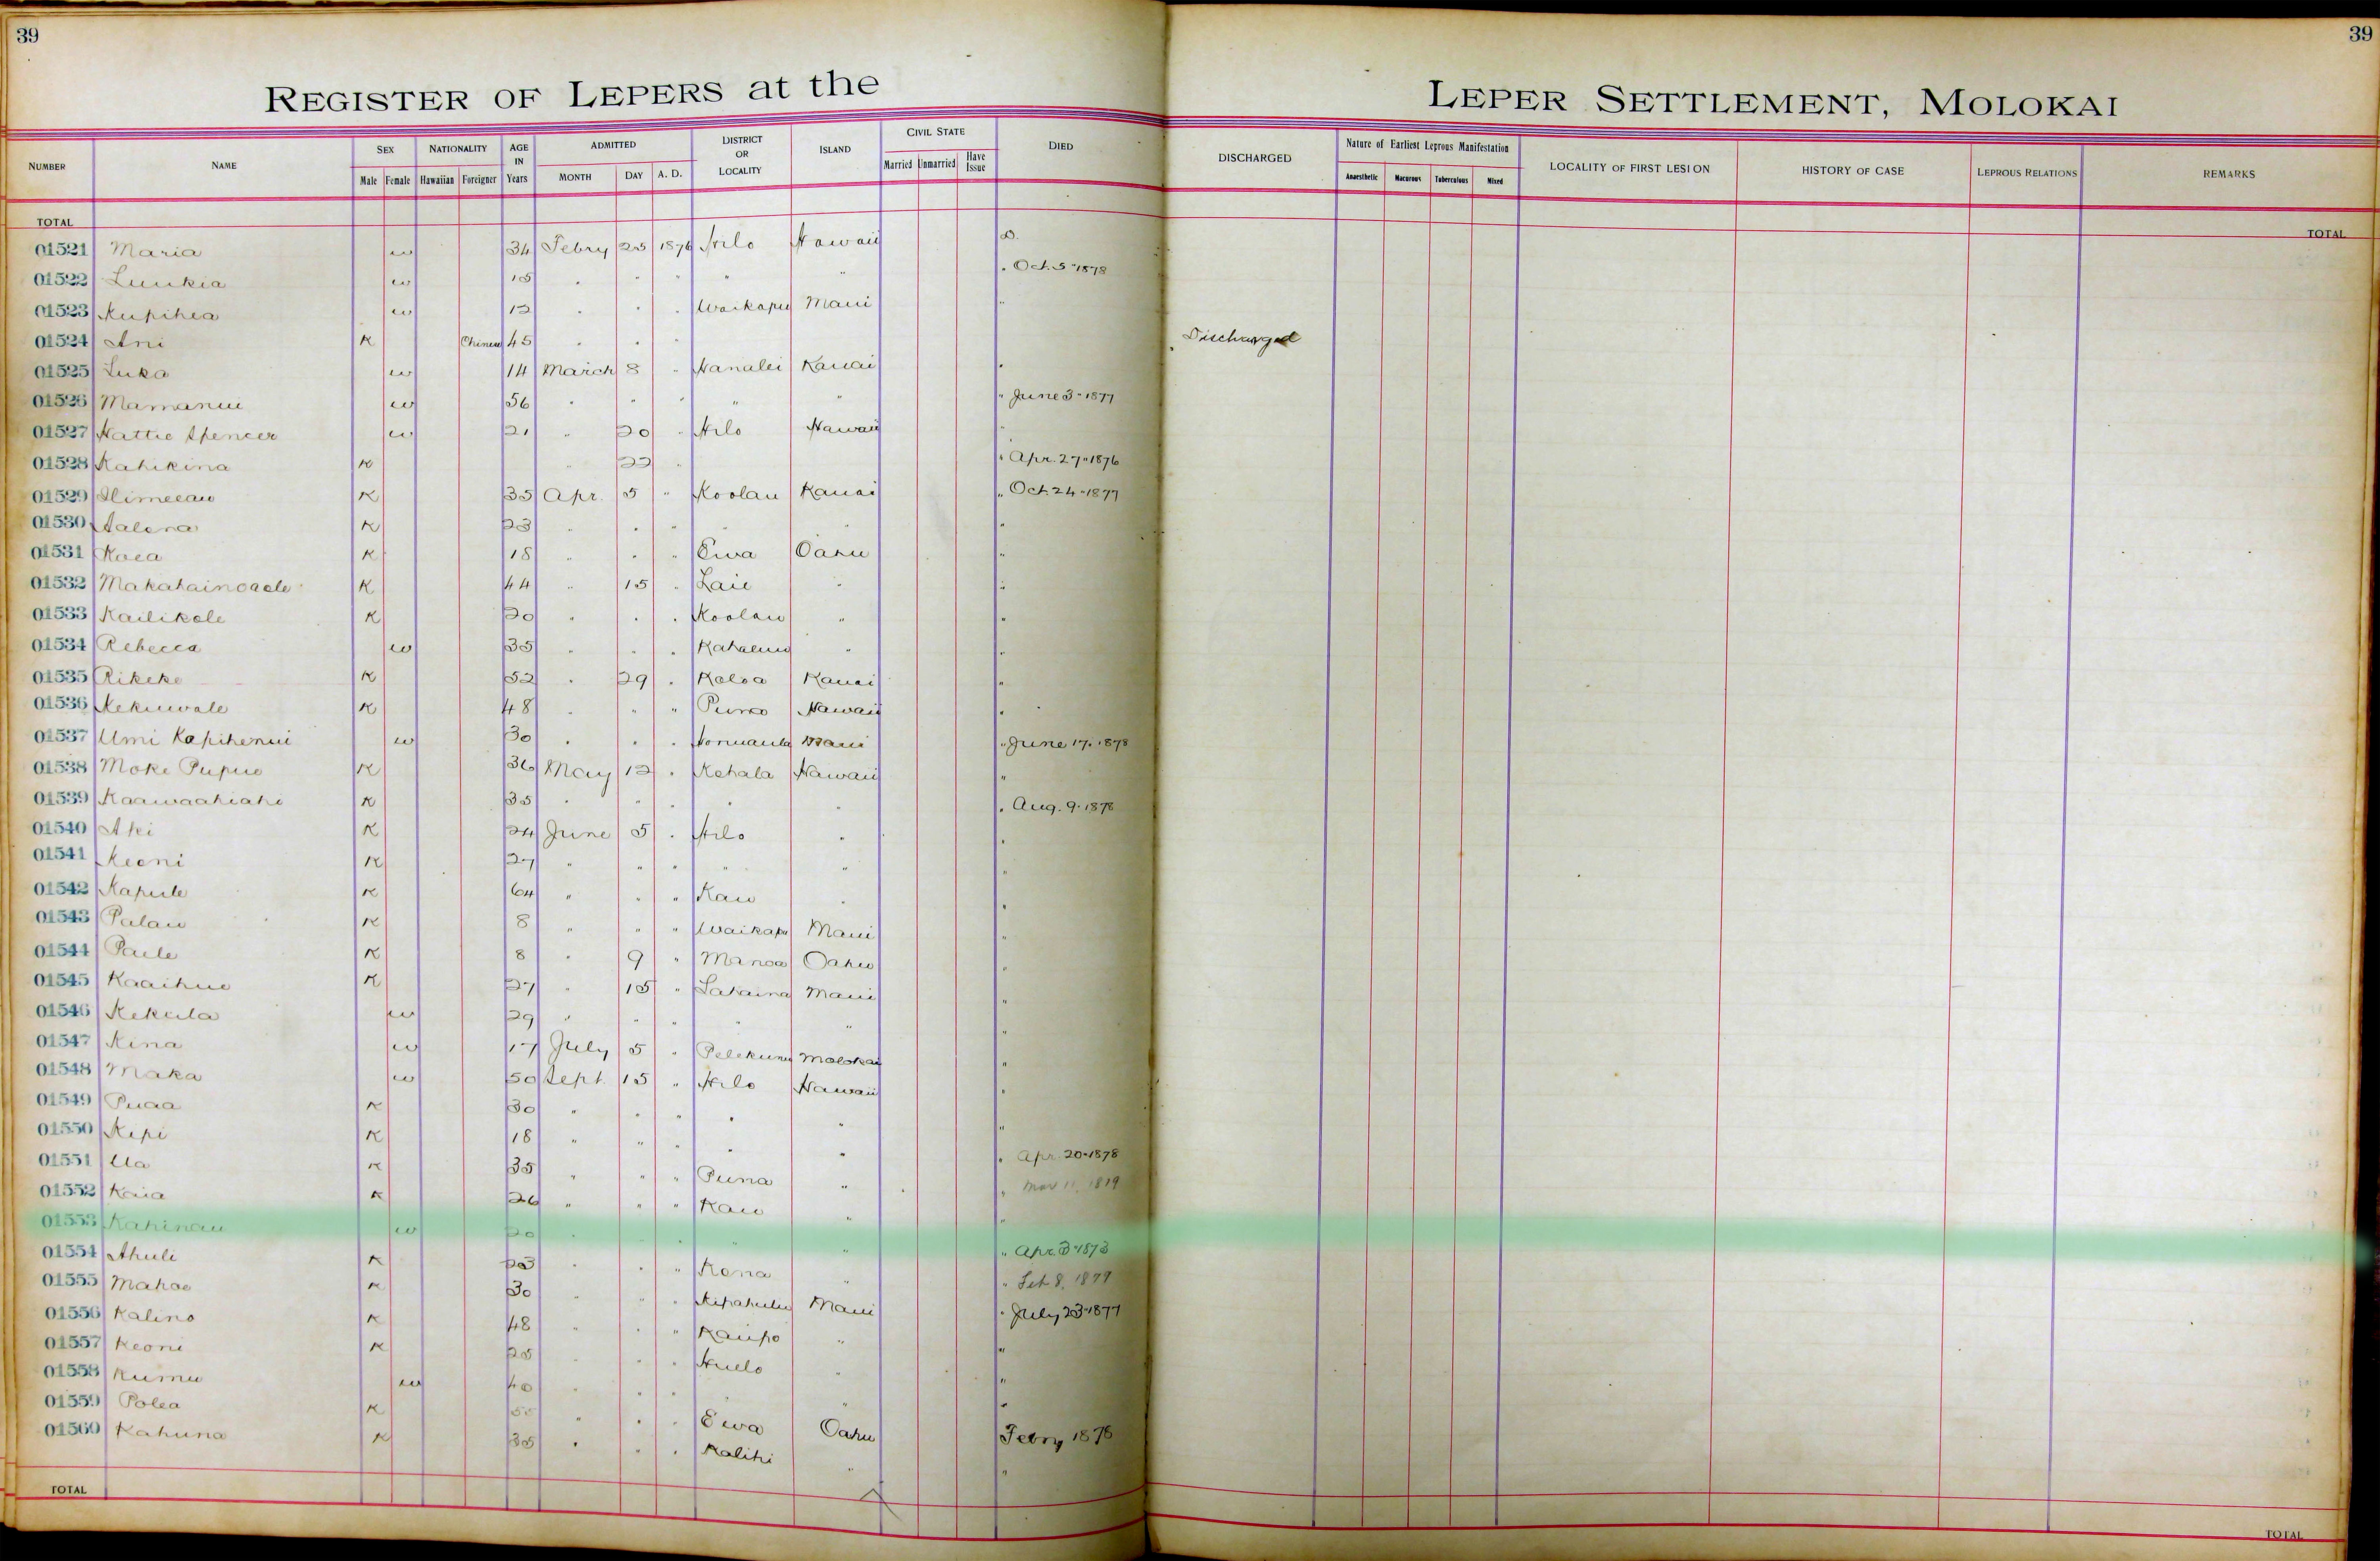 39
39
REGISTER OF LEPERS at the LEPER SETTLEMENT, MOLOKAI
NUMBER NAME SEX Male Female NATIONALITY Hawaiian Foreigner AGE IN Years ADMITTED MONTH DAY A. D. DISTRICT OR LOCALITY ISLAND CIVIL STATE Married Unmarried Have Issue DIED DISCHARGED Nature of Earliest Leprous Manifestation Anaesthetic Macurous Tuberculous Mixed LOCALITY OF FIRST LESION HISTORY OF CASE LEPROUS RELATIONS REMARKS
TOTAL TOTAL
01521 Maria w 34 Febry 25 1876 Hilo Hawaii D.
01522 Luukia w 15 " " " " " " Oct. 5 " 1878
01523 Kupihea w 12 " " " Waikapu Maui "
01524 Ani K Chinese 45 " " " Discharged
01525 Luka w 14 March 8 " Hanalei Kauai "
01526 Mamanui w 56 " " " " " " June 3 " 1877
01527 Hattie Spencer w 21 " 20 " Hilo Hawaii "
01528 Kahikina K " 22 " " Apr. 27 " 1876
01529 K 35 Apr. 5 " Koolau Kauai " Oct. 24 " 1877
01530 Aalona K 23 " " " " " "
01531 Koea K 18 " " " Ewa Oahu "
01532 Makahainoaole K 44 " 15 " Laie " "
01533 Kailikole K 20 " " " Koolau " "
01534 Rebecca w 35 " " " Kahaluu " "
01535 Rikeke K 52 " 29 " Koloa Kauai "
01536 Kekuwale K 48 " " " Puna Hawaii "
01537 Umi Kapihenui w 30 " " " Honuaula Maui " June 17 " 1878
01538 Moke Pupuo K 36 May 12 " Kohala Hawaii "
01539 Kaawaahiahi K 35 " " " " " " Aug. 9 " 1878
01540 Aki K 24 June 5 " Hilo " "
01541 Keoni K 27 " " " " " "
01542 Kapule K 64 " " " Kau " "
01543 Palau K 8 " " " Waikapu Maui "
01544 Paele K 8 " 9 " Manoa Oahu "
01545 Kaaihue K 27 " 15 " Lahaina Maui "
01546 Kekula w 29 " " " " " "
01547 Kina w 17 July 5 " Pelekunu Molokai "
01548 Maka w 50 Sept. 15 " Hilo Hawaii "
01549 Puaa K 30 " " " " " "
01550 Kipi K 18 " " " " " " Apr. 20 " 1878
01551 Ua K 35 " " " Puna " " Mar 11, 1879
01552 Kaia K 26 " " " Kau " "
01553 Kahinau w 20 " " " " " " Apr. 3 " 1873
01554 Ahuli K 23 " " " Kona " " Feb 8, 1879
01555 Mahoe K 30 " " " Kipahulu Maui " July 23 " 1877
01556 Kalino K 48 " " " Kaupo " "
01557 Keoni K 25 " " " Huelo " "
01558 Kumu w 40 " " " " "
01559 Polea K 55 " " " Ewa Oahu Febry 1878
01560 Kahuna K 35 " " " Kalihi " "
TOTAL TOTAL